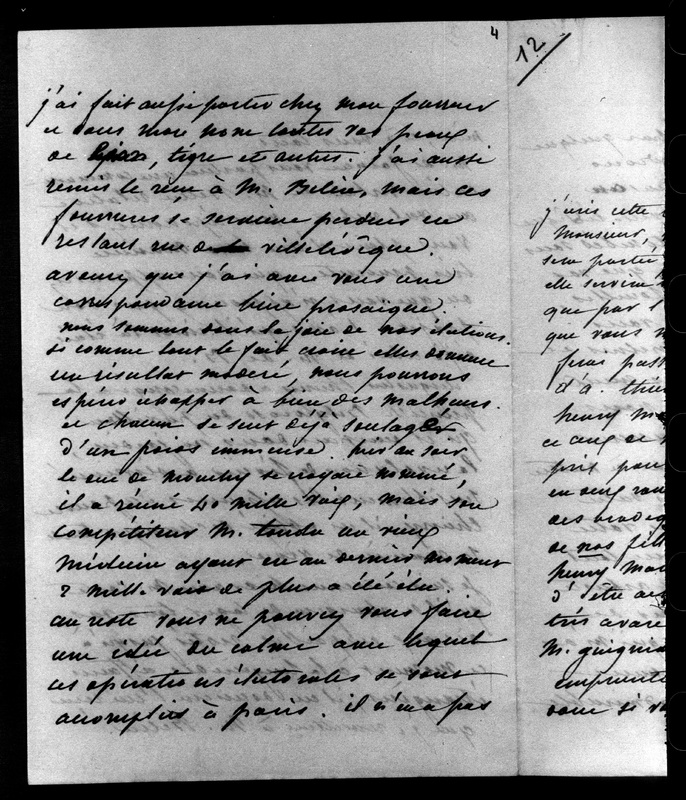 4
j'ai fait aussi porter chez mon fourreur
et sous mon nom toutes vos peaux
de lion, tigre et autres. j'ai aussi
remis le reçu à M. Belin, mais ces
fourrures se seraient perdues en
restant rue de la villelévêque.
avouez que j'ai avec vous une
correspondance bien prosaïque.
nous sommes dans la joie de nos élections.
si comme tout le fait croire elles donnent
un résultat modéré, nous pourrons
espérer échapper à bien des malheurs.
et chacun se sent déjà soulagér
d'un poids immense. hier au soir
le duc de mouchy se croyait nommé,
il a réuni 40 mille voix, mais son
compétiteur M. un vieux
médecin ayant eu au dernier moment
2 mille voix de plus a été élu.
au reste vous ne pouvez vous faire
une idée du calme avec lequel
ces opérations électorales se sont
accomplies à paris. il n'y a pas
12
j'écris cette
Monsieur,
sera portée
elle servira
que par l
que vous
ferai pass
d'a. thie
henry Ma
ce que de
prit pou
en deux
des
de nos fill
henry Mac
d'être
très avare
M.
emprunte
vous si vo